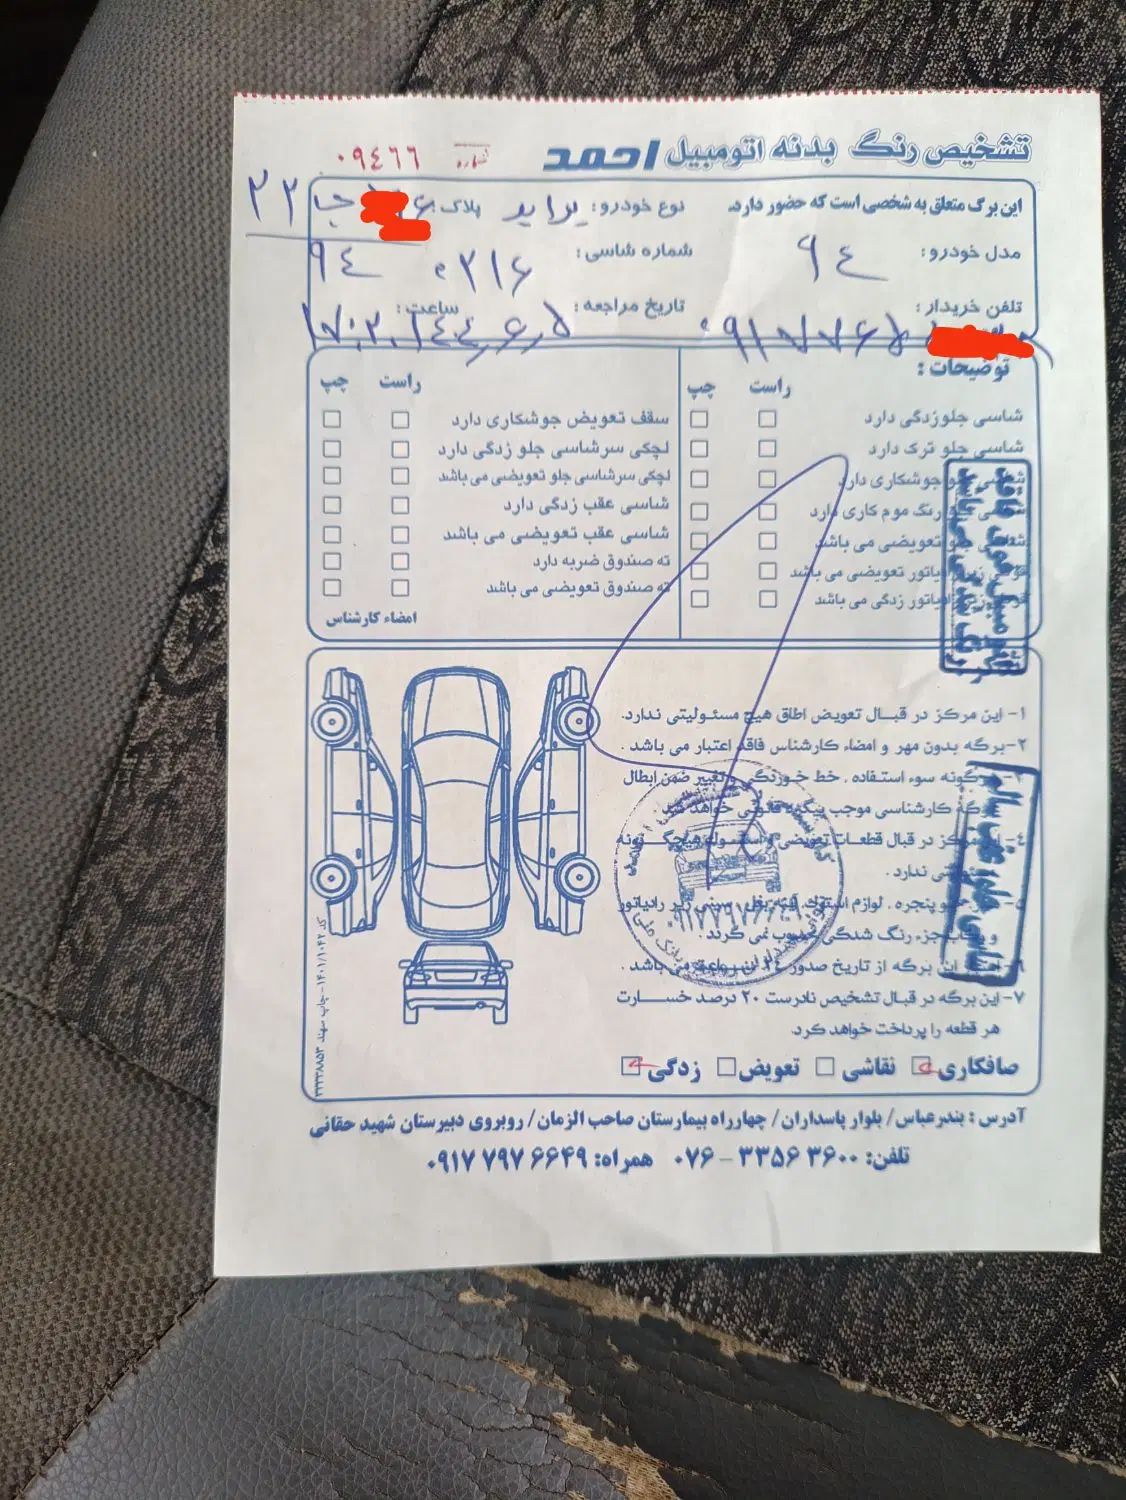 تشخیص رنگ بدنه اتومبیل احمد
شماره ۰۹۴۶۶
این برگ متعلق به شخصی است که حضور دارد.
نوع خودرو: پراید پلاک: ج ۲۲
مدل خودرو: ۹۴
شماره شاسی: ۰۲۱۶ ۹۴
تلفن خریدار: ۰۹۱۷۷۶۵
تاریخ مراجعه: ساعت:
توضیحات:
راست چپ
شاسی جلو زدگی دارد
شاسی جلو ترک دارد
جوشکاری دارد
رنگ موم کاری دارد
جلو تعویضی می باشد
رادیاتور تعویضی می باشد
رادیاتور زدگی می باشد
راست چپ
سقف تعویض جوشکاری دارد
لچکی سرشاسی جلو زدگی دارد
لچکی سرشاسی جلو تعویضی می باشد
شاسی عقب زدگی دارد
شاسی عقب تعویضی می باشد
ته صندوق ضربه دارد
ته صندوق تعویضی می باشد
امضاء کارشناس
اتومبیل فوق فاقد
رنگ شدگی می باشد
۱- این مرکز در قبال تعویض اطاق هیچ مسئولیتی ندارد.
۲- برگه بدون مهر و امضاء کارشناس فاقد اعتبار می باشد.
۳- هرگونه سوء استفاده. خط خوردگی و تغییر ضمن ابطال
برگه کارشناسی موجب پیگرد قانونی خواهد شد.
۴- این مرکز در قبال قطعات تعویضی و هیچگونه
ندارد.
۵- جلو پنجره. لوازم استوک. سینی زیر رادیاتور
و جزء رنگ شدگی محسوب نمی گردند.
۶- این برگه از تاریخ صدور ۲۴ می باشد.
۷- این برگه در قبال تشخیص نادرست ۲۰ درصد خسارت
هر قطعه را پرداخت خواهد کرد.
شاسی جلو و عقب سالم
صافکاری نقاشی تعویض زدگی
آدرس: بندرعباس/ بلوار پاسداران/ چهارراه بیمارستان صاحب الزمان/ روبروی دبیرستان شهید حقانی
تلفن: ۳۶۰۰ ۳۳۵۶ - ۰۷۶ همراه: ۶۶۴۹ ۷۹۷ ۰۹۱۷